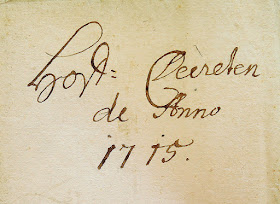 Hoff= Decreten
de Anno
1715.